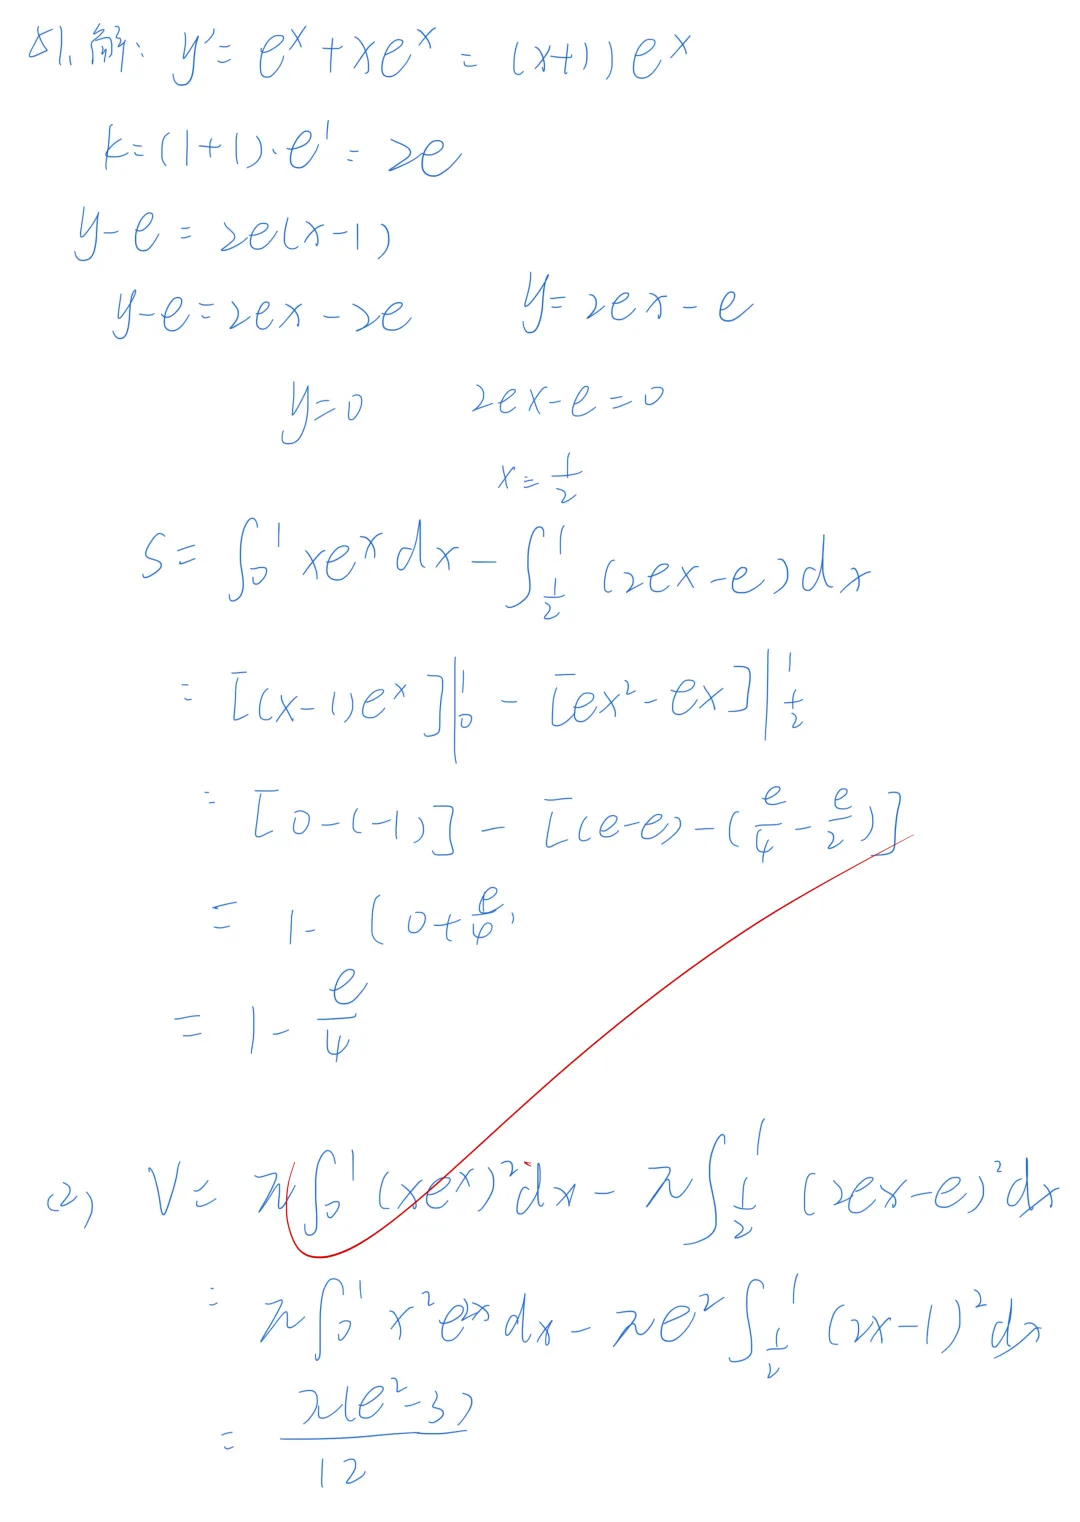 81. 解: y' = e^x + xe^x = (x+1)e^x
k = (1+1)·e^1 = 2e
y-e = 2e(x-1)
y-e = 2ex-2e y = 2ex-e
y=0 2ex-e=0
x = 1/2
S = ∫_0^1 xe^x dx - ∫_{1/2}^1 (2ex-e)dx
= [(x-1)e^x]|_0^1 - [ex²-ex]|_{1/2}^1
= [0-(-1)] - [(e-e)-(e/4 - e/2)]
= 1 - (0 + e/4)
= 1 - e/4
(2) V = π∫_0^1 (xe^x)² dx - π∫_{1/2}^1 (2ex-e)² dx
= π∫_0^1 x²e^{2x} dx - πe² ∫_{1/2}^1 (2x-1)² dx
= π(e²-3)/12